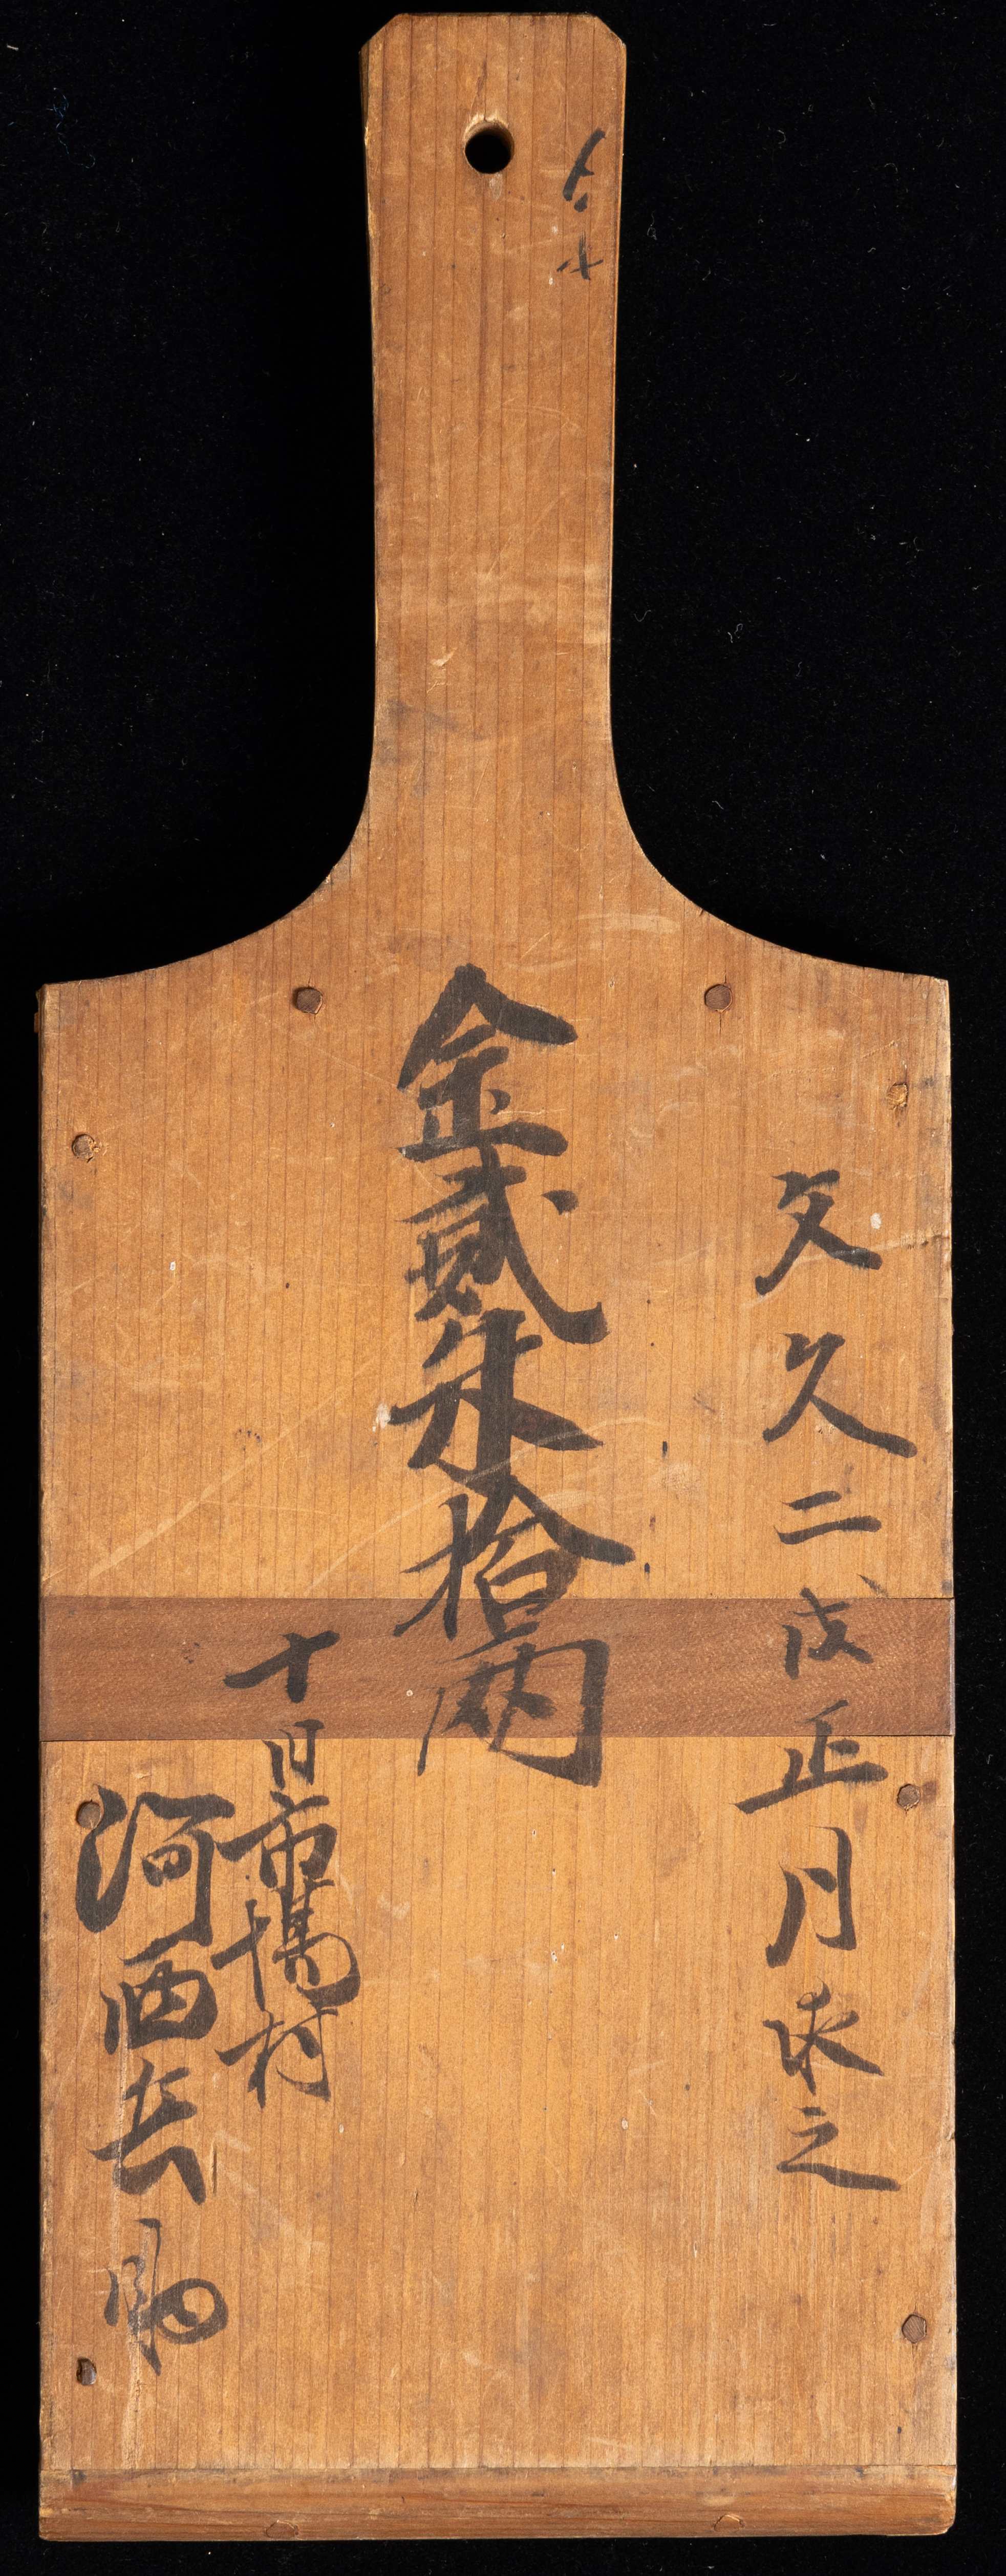 文久二戌正月求之
金貮朱拾両
十日市場村
河西兵助